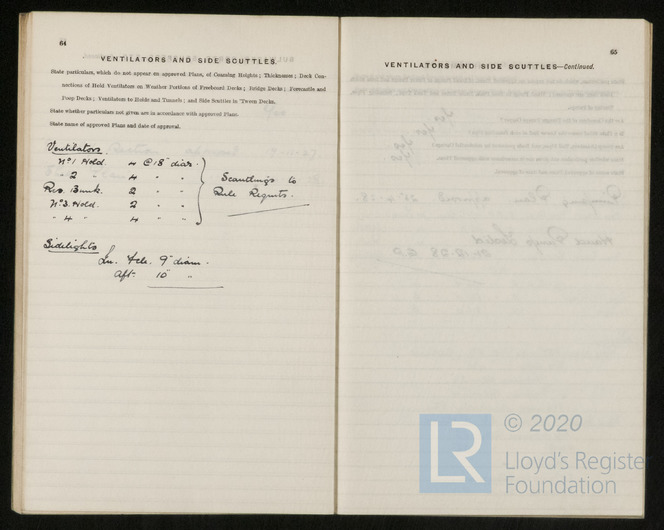 64
VENTILATORS AND SIDE SCUTTLES.
State particulars, which do not appear on approved Plans, of Coaming Heights; Thicknesses; Deck Con-
nections of Hold Ventilators on Weather Portions of Freeboard Decks; Bridge Decks; Forecastle and
Poop Decks; Ventilators to Holds and Tunnels; and Side Scuttles in 'Tween Decks.
State whether particulars not given are in accordance with approved Plans.
State name of approved Plans and date of approval.
Ventilators.
No 1 Hold. 4 @ 18" diar.
" 2 " 4 " "
Res. Bunk. 2 " "
No 3. Hold. 2 " "
" 4 " 2 " "
Scantlings to
Rule Reqmts.
Sidelights
In. Fcle. 9" diam.
Aft. 10" "
65
VENTILATORS AND SIDE SCUTTLES—Continued.
LR
© 2020
Lloyd's Register
Foundation